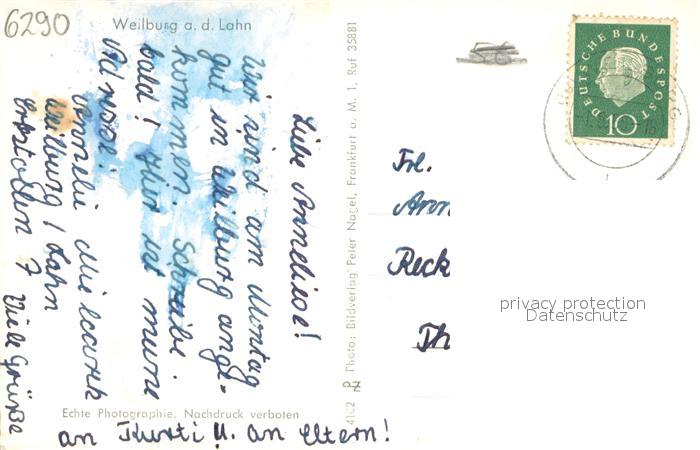 6290
Weilburg a. d. Lahn
Liebe Anneliese!
Wir sind am Montag
gut in Weilburg ange-
kommen. Schreibe
bald! Hier ist meine
Adresse:
Wilburg / Lahn
7
Viele Grüße
an Kurti u. an Eltern!
Echte Photographie. Nachdruck verboten
4102 P Photo: Bildverlag Peter Nagel, Frankfurt a. M. 1, Ruf 35881
DEUTSCHE BUNDESPOST
10
Frl.
Ann
Reck
Th
privacy protection
Datenschutz